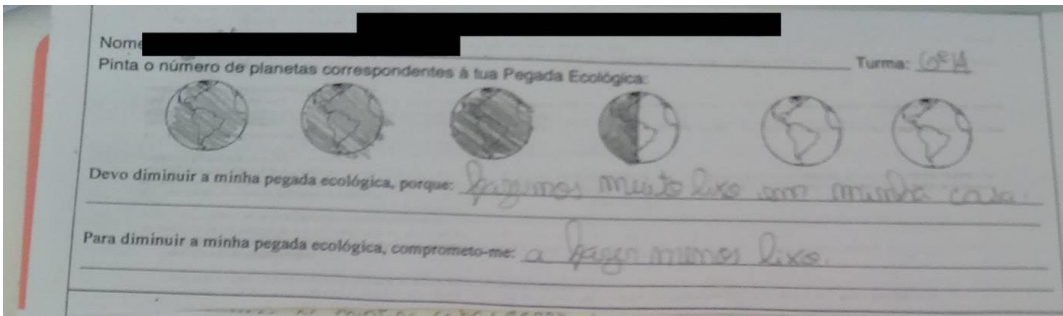 Nome
Pinta o número de planetas correspondentes à tua Pegada Ecológica: Turma: 6º A
Devo diminuir a minha pegada ecológica, porque: fazemos muito lixo em minha casa.
Para diminuir a minha pegada ecológica, comprometo-me: a fazer menos lixo.